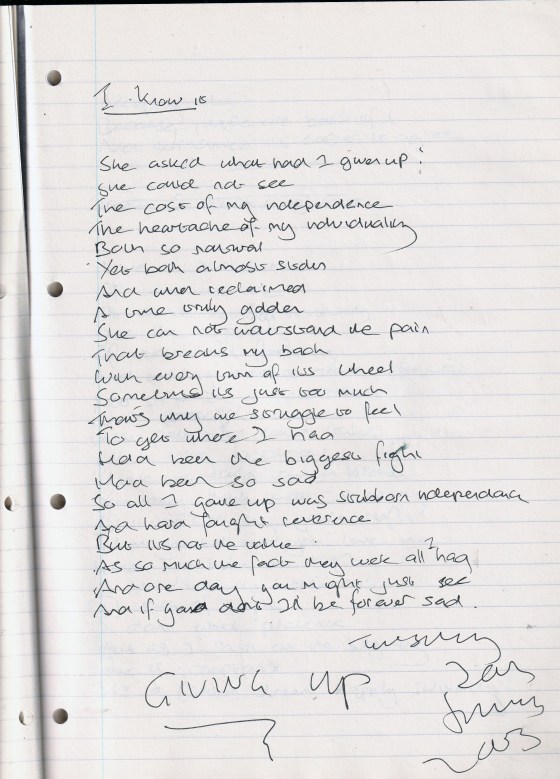 I know it
She asked what had I given up?
She could not see
The cost of my independence
The heartache of my individuality
Both so natural
Yet both almost stolen
And when reclaimed
A time truly golden
She can not understand the pain
That breaks my back
With every turn of its wheel
Sometimes its just too much
That's why we struggle to feel
To get where I had
Had been the biggest fight
Had been so sad
So all I gave up was stubborn independence
And hard fought reverence
But its not the value
As so much the fact they were all I had
And one day you might just see
And if you don't I'll be forever sad.
Tuesday
GIVING UP
2003